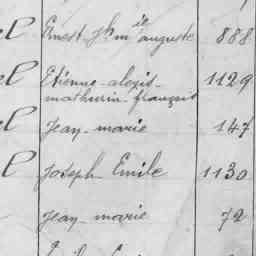 el Ernest jh m ie auguste 888
el Etienne-alexis- 1129
mathurin-françois
el jean-marie 147
el joseph-Emile 1130
jean-marie 72